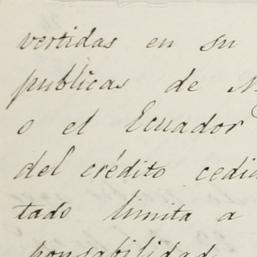 vertidas en su
publicas de
o el Ecuador
del crédito cedi
tado limita a
ponsabilidad